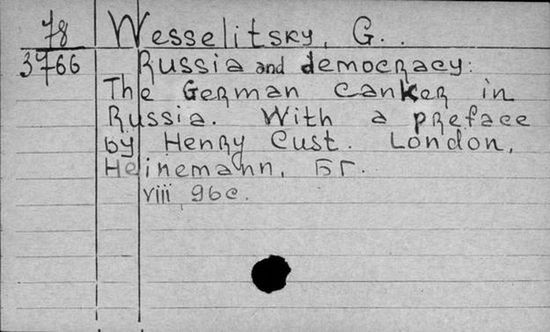 78 Wesselitsky, G..
3766 Russia and democracy:
The German canker in
Russia. With a preface
by Henry Cust. London,
Heinemann, БГ.
viii, 96с.